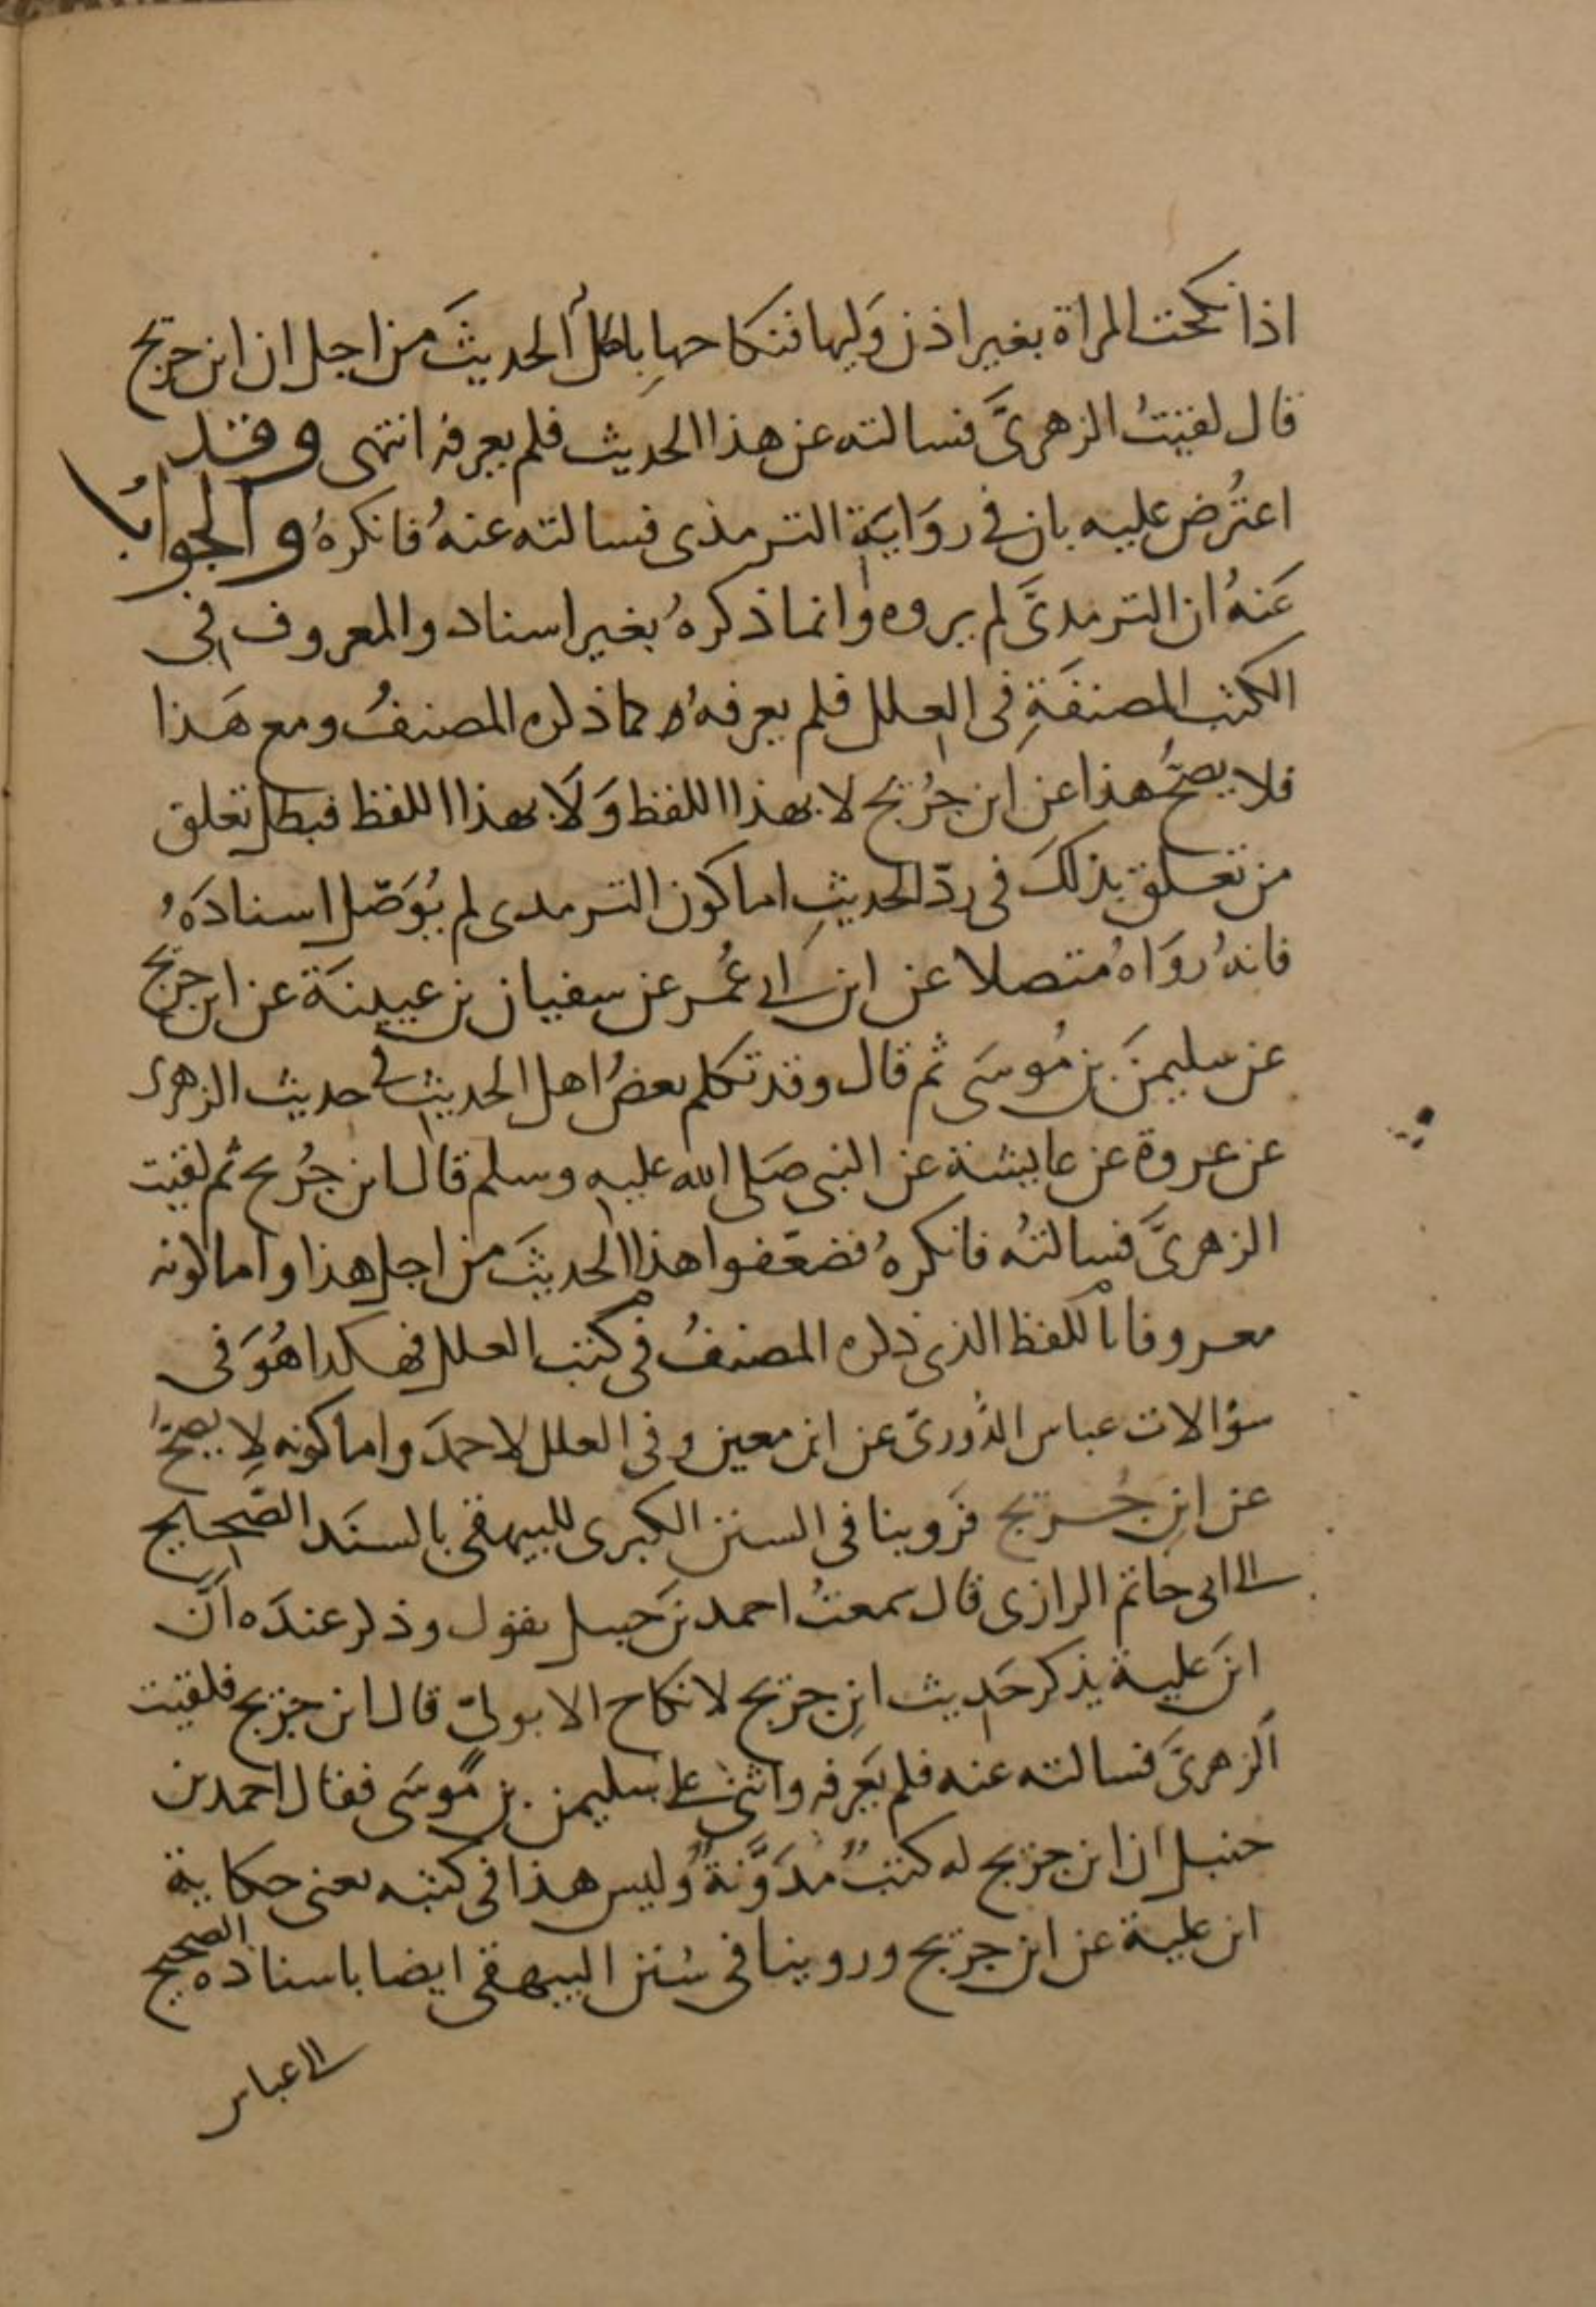 اذا نكحت المراة بغير اذن وَليها فنكاحها باطل الحديثَ من اجل ان ابن جريج
قال لقيتُ الزهرىَّ فسالته عن هذا الحديث فلم يعرفه انتهى وقد
اعتُرض عليه بان في روَايَةِ الترمذى فسالته عنهُ فانكرهُ والجوابُ
عَنهُ ان الترمدىَّ لم يروه وانما ذكرهُ بغير اسناد والمعروف فى
الكتب المصنفَةِ فى العلل فلم يعرفهُ كما ذكره المصنفُ ومع هَذا
فلا يصحُّ هذا عن ابن جُرَيج لا بهذا اللفظ وَلَا بهذا اللفظ فبطل تعلق
من تعلق بذلكَ فى ردّ الحديثِ اما كون الترمدى لم يُوَصّل اسنادَهُ
فانهُ روَاهُ متصلا عن ابن ابى عُمر عن سفيان بن عيينَة عن ابن جريج
عن سليمنَ بن مُوسَى ثم قال وقد تكلم بعضُ اهل الحديثِ في حديث الزهرى
عن عروة عن عايشة عن النبى صَلى الله عليه وسلم قال ابن جُريج ثم لقيت
الزهرىَّ فسالتهُ فانكرهُ فضعّفوا هذا الحديثَ من اجل هذا واما كونه
معروفا باللفظ الذى ذكره المصنفُ فى كتب العلل فهكدا هُوَ فى
سؤالات عباس الدُّورىّ عن ابن معين وفى العلل لاحمدَ واما كونه لا يصحّ
عن ابنِ جُريج فرَوينا فى السنن الكبرى للبيهقى بالسنَد الصّحيح
الى ابى حاتم الرازى قال سمعتُ احمد بنَ حنبل يقول وذكر عندَه انّ
ابنَ علية يذكر حَديث ابنِ جريج لا نكاح الا بولىّ قال ابن جريج فلقيت
الزهرىَّ فسالته عنه فلم يَعرفه واثنى على سليمن بن مُوسَى فقال احمد بن
حنبل ان ابن جريج له كتبٌ مُدَوَّنةٌ وليس هذا فى كتبه يعنى حكاية
ابن علية عن ابن جريج وروينا فى سُنن البيهقى ايضا باسناده الصحيح
الى عباس